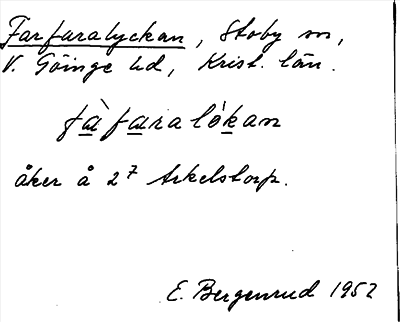 Farfaralyckan, Stoby sn,
V. Göinge hd, Krist. län.
fàfaralókan
åker å 2⁷ Arkelstorp.
E. Bergenrud 1952